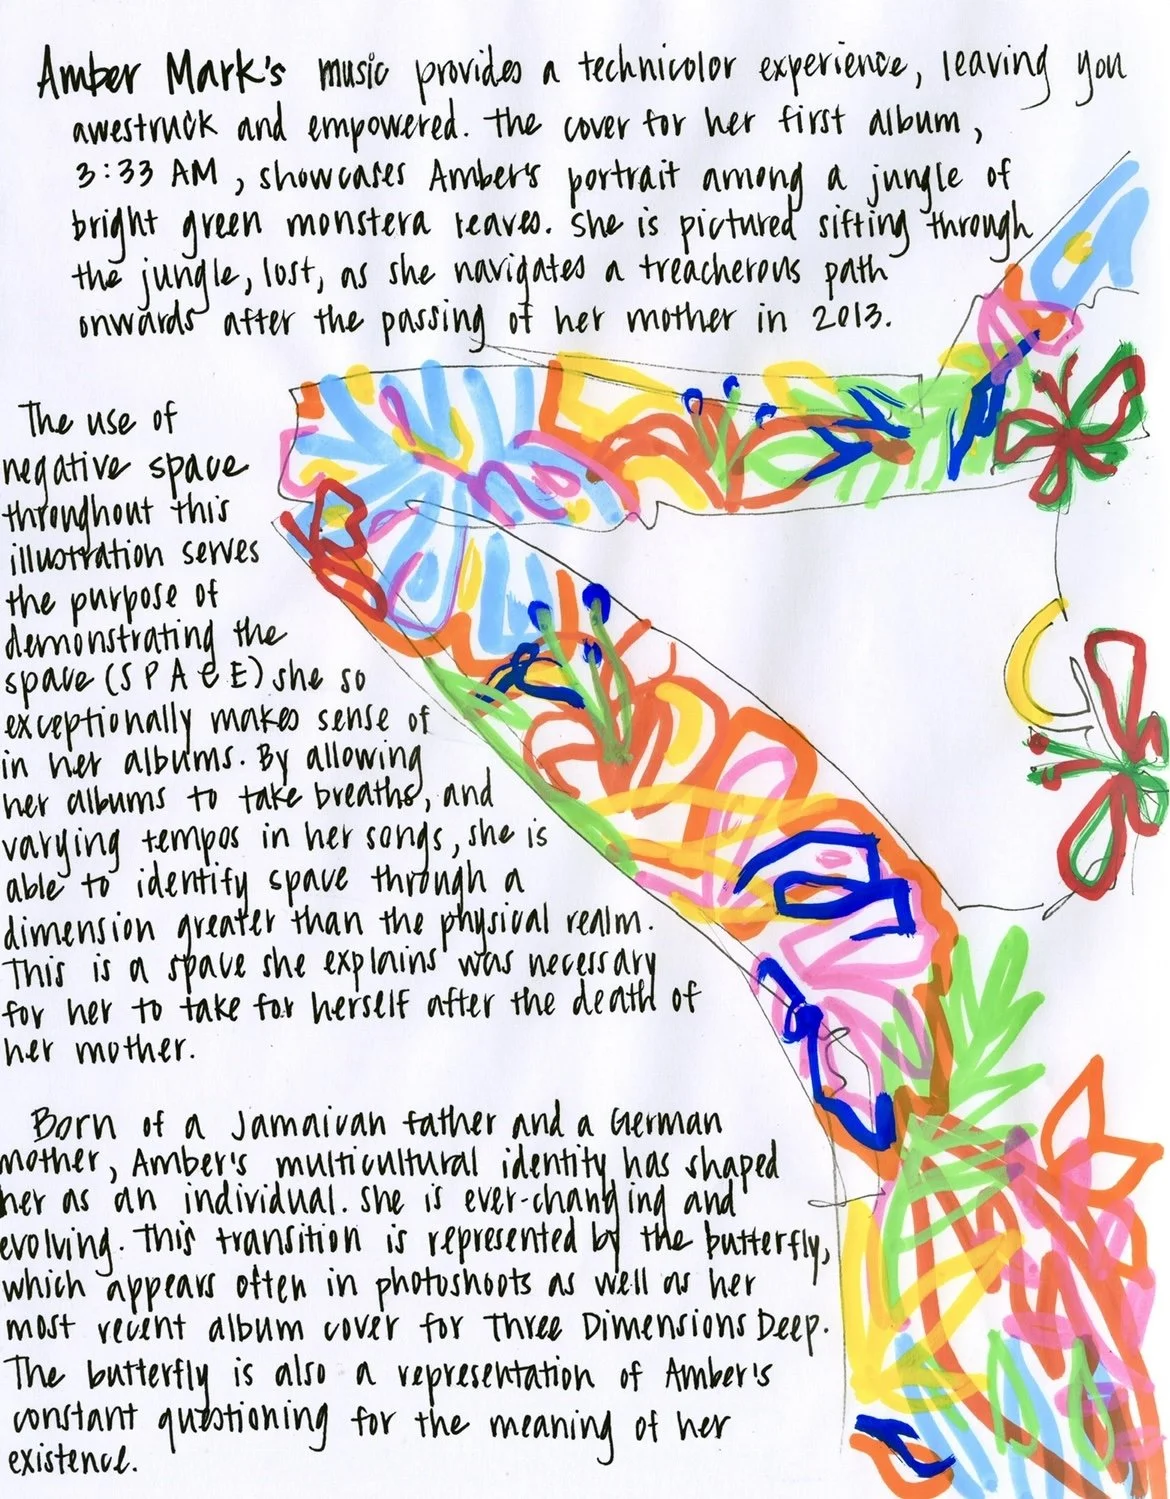 Amber Mark's music provides a technicolor experience, leaving you
awestruck and empowered. The cover for her first album,
3:33 AM, showcases Amber's portrait among a jungle of
bright green monstera leaves. She is pictured sifting through
the jungle, lost, as she navigates a treacherous path
onwards after the passing of her mother in 2013.
The use of
negative space
throughout this
illustration serves
the purpose of
demonstrating the
space (S P A C E) she so
exceptionally makes sense of
in her albums. By allowing
her albums to take breaths, and
varying tempos in her songs, she is
able to identify space through a
dimension greater than the physical realm.
This is a space she explains was necessary
for her to take for herself after the death of
her mother.
Born of a Jamaican father and a German
mother, Amber's multicultural identity has shaped
her as an individual. She is ever-changing and
evolving. This transition is represented by the butterfly,
which appears often in photoshoots as well as her
most recent album cover for Three Dimensions Deep.
The butterfly is also a representation of Amber's
constant questioning for the meaning of her
existence.